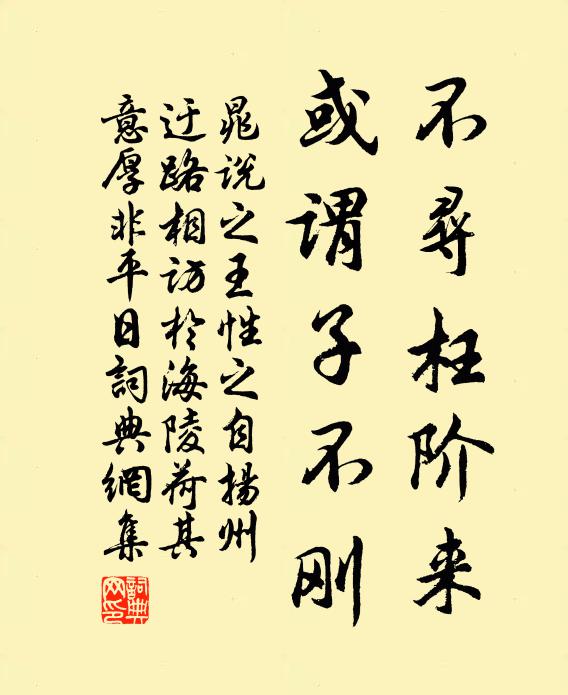 不尋枉阶来
或谓子不刚
晁说之王性之自揚州
迂路相访於海陵荷其
意厚非平日詞典網集
詞典网印